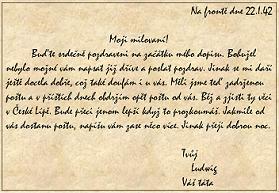 Na frontě dne 22.1.42
Moji milovaní!
Buďte srdečně pozdraveni na začátku mého dopisu. Bohužel
nebylo možné vám napsat již dříve a poslat pozdrav. Jinak se mi daří
ještě docela dobře, což také doufám i u vás. Měli jsme teď zadrženou
poštu a v příštích dnech obdržím opět poštu od vás. Běž a zjisti ty věci
v České Lípě. Bude přeci jenom lepší když to prozkoumáš. Jakmile od
vás dostanu poštu, napíšu vám zase něco více. Jinak přeji dobrou noc.
Tvůj
Ludwig
Váš táta